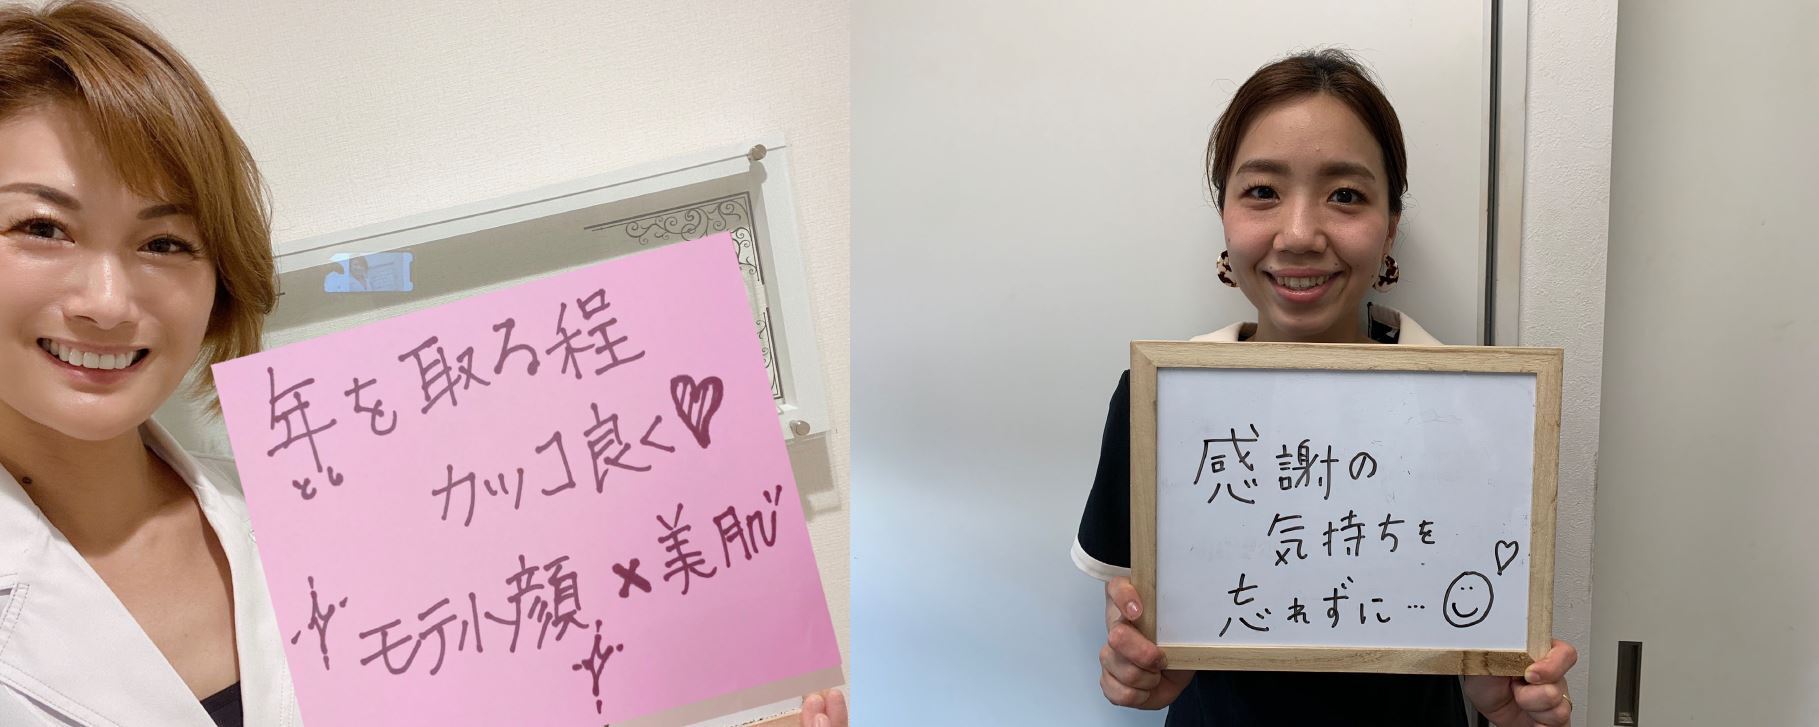 年を取る程
とし
カッコ良く♥
モテ小顔×美肌
感謝の
気持ちを
忘れずに…